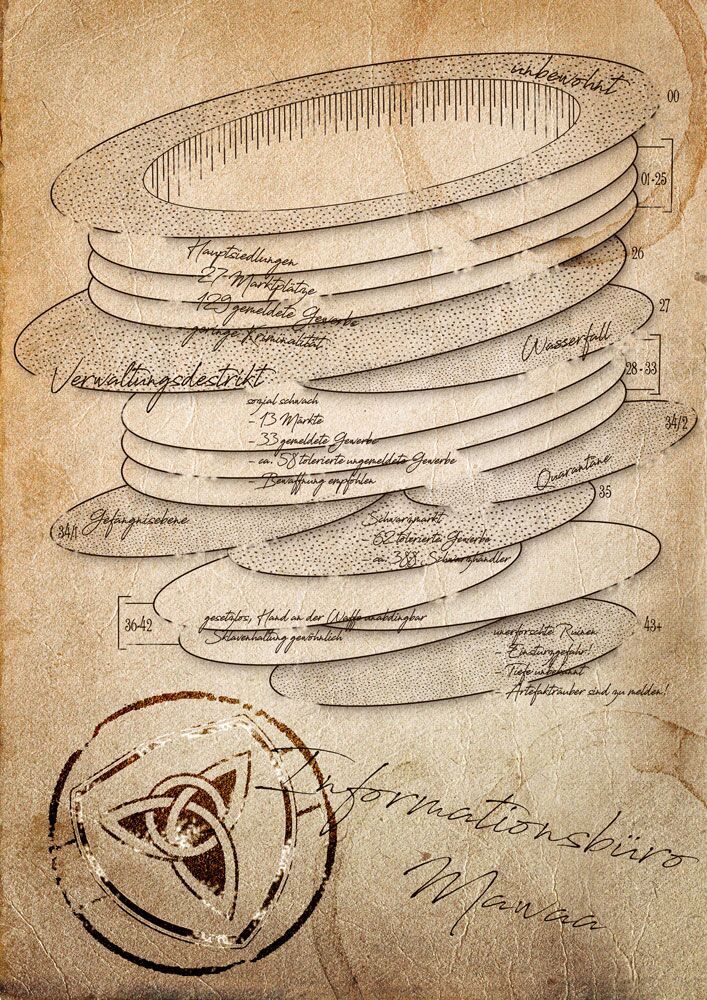 unbewohnt
00
01-25
Hauptsiedlungen
27 Marktplätze
129 gemeldete Gewerbe
geringe Kriminalität
26
27
Verwaltungsdestrikt
Wasserfall
28 - 33
sozial schwach
- 13 Märkte
- 33 gemeldete Gewerbe
- ca. 58 tolerierte ungemeldete Gewerbe
- Bewaffnung empfohlen
34/2
Quarantäne
34/1 Gefängnisebene
35
Schwarzmarkt
- 62 tolerierte Gewerbe
- ca. 388 Schwarzhändler
36-42
gesetzlos, Hand an der Waffe unabdingbar
Sklavenhaltung gewöhnlich
43+
unerforschte Ruinen
- Einsturzgefahr!
- Tiefe unbekannt
- Artefakträuber sind zu melden!
Informationsbüro
Mawaa